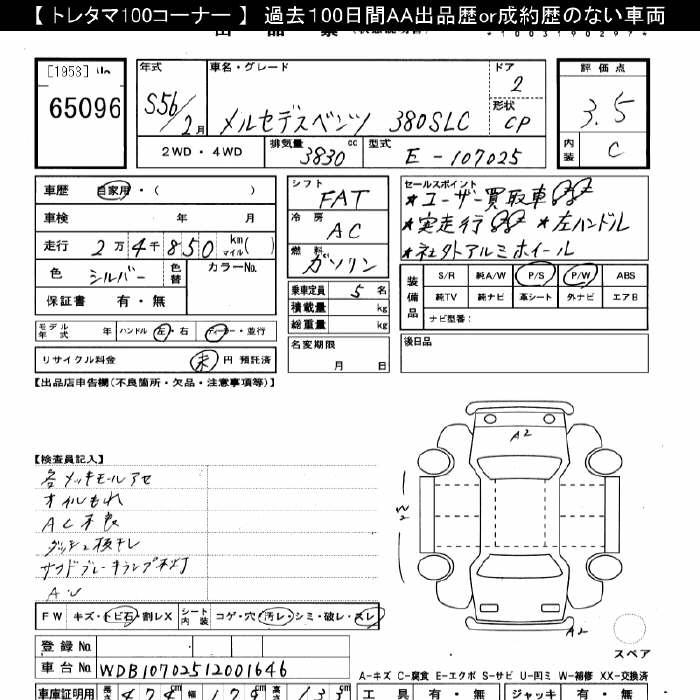 【 トレタマ100コーナー 】 過去100日間AA出品歴or成約歴のない車両
[1953]
65096
年式 車名・グレード ドア 評価点
S56/2月 メルセデスベンツ 380SLC 2 3.5
形状 CP
2WD・4WD 排気量 3830cc 型式 E-107025 内装 C
車歴 自家用・( )
車検 年 月
走行 2万4千850 km マイル( )
色 シルバー 色替 カラーNo.
保証書 有・無
モデル年式 年 ハンドル 左・右 ディーラー・並行
リサイクル料金 未 円 預託済
シフト FAT
冷房 AC
燃料 ガソリン
乗車定員 5 名
積載量 kg
総重量 kg
名変期限 月 日
セールスポイント
★ユーザー買取車
★実走行 ★左ハンドル
★社外アルミホイール
装備品 S/R 純A/W P/S P/W ABS
純TV 純ナビ 革シート 外ナビ エアB
ナビ型番：
後日品
【出品店申告欄(不良箇所・欠品・注意事項等)】
【検査員記入】
各メッキモールアセ
オイルもれ
AC不良
ダッシュ板干し
サイドブレーキランプ不灯
A2
A2
スペア
FW キズ・トビ石・割レX シート内装 コゲ・穴・汚レ・シミ・破レ・スレ
登録No.
車台No. WDB10702512001646
A-キズ C-腐食 E-エクボ S-サビ U-凹ミ W-補修 XX-交換済
車庫証明用 長さ 474cm 幅 179cm 高さ 135
工具 有・無 ジャッキ 有・無